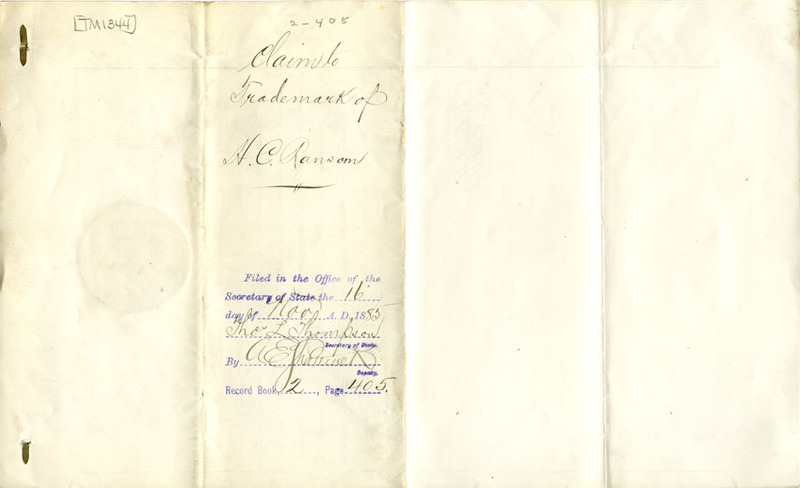 TM1344
2-405
Claim to
Trademark of
H. C. Ransom
Filed in the Office of the
Secretary of State the 16
day of Nov A. D. 1885
Thos L Thompson
Secretary of State.
By
Deputy.
Record Book 2, Page 405.